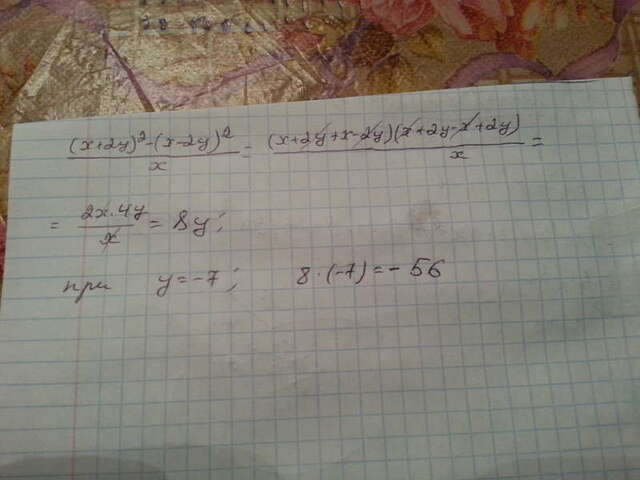 (x+2y)²-(x-2y)²/x = (x+2y+x-2y)(x+2y-x+2y)/x =
= 2x·4y/x = 8y;
при y=-7; 8·(-7)=-56